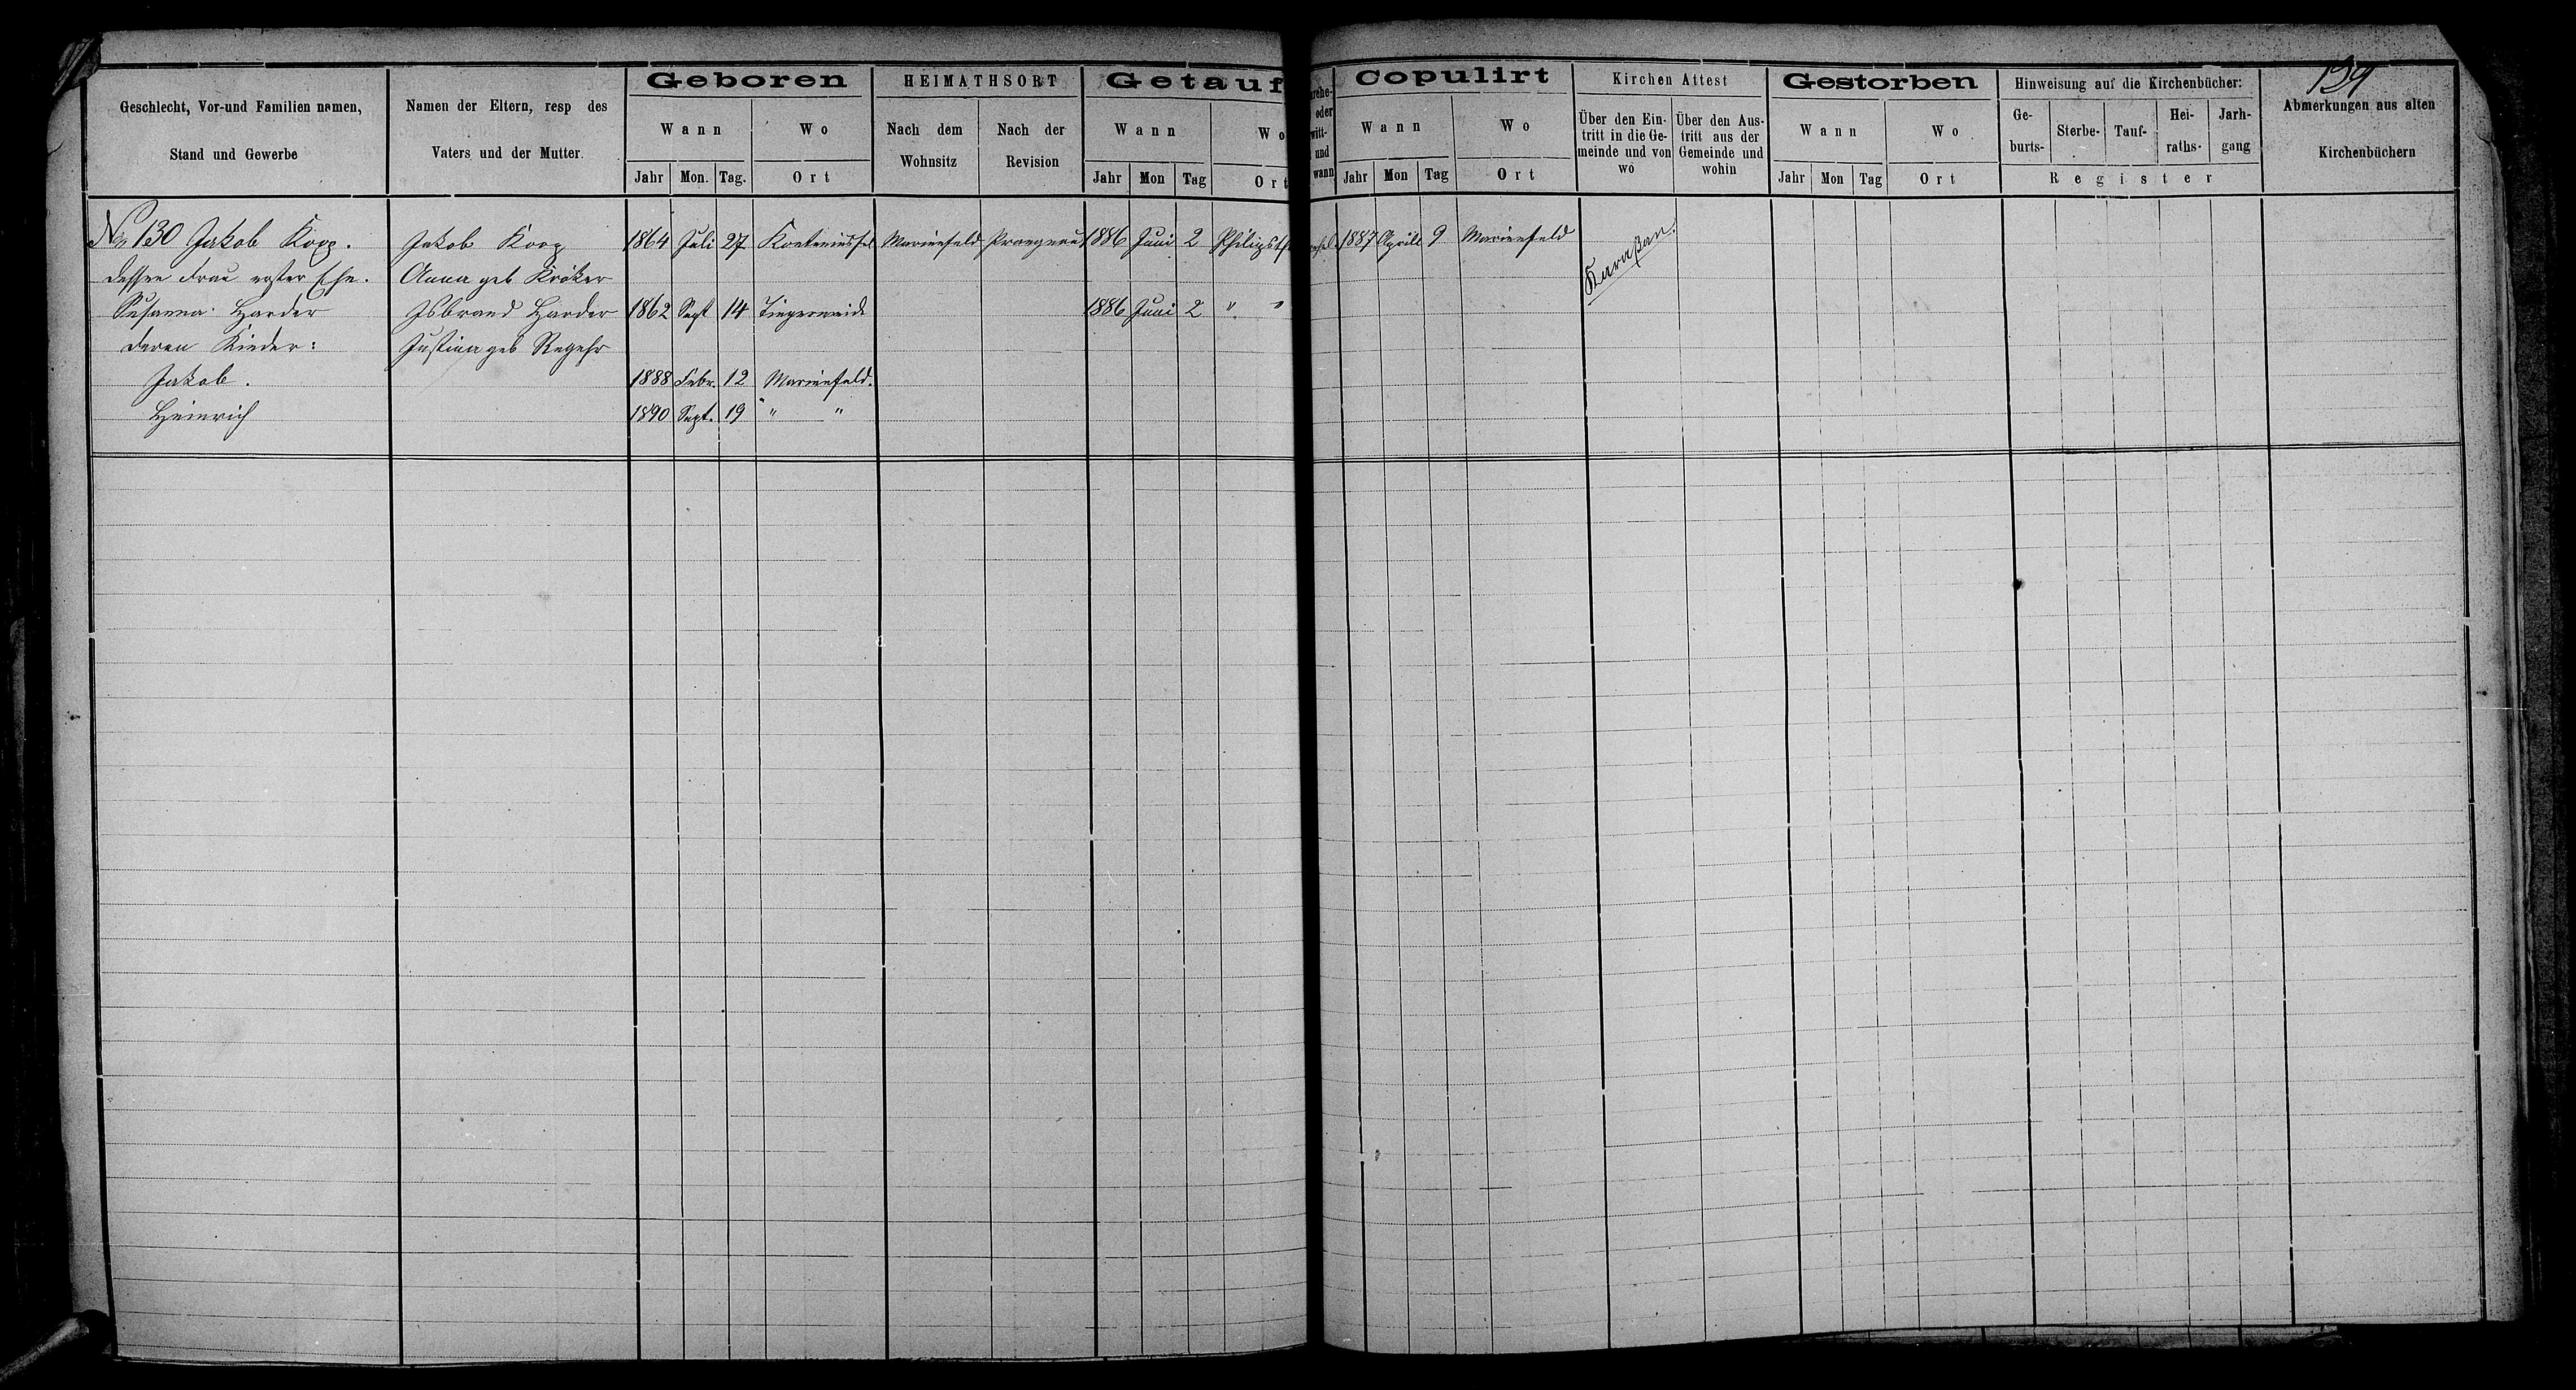 139
Geschlecht, Vor-und Familien namen,
Stand und Gewerbe
Namen der Eltern, resp des
Vaters und der Mutter.
Geboren
Wann
Wo
Jahr Mon. Tag. Ort
HEIMATHSORT
Nach dem Wohnsitz
Nach der Revision
Getauf
Wann
Wo
Jahr Mon Tag Ort
rehe-
oder
witt-
und
wann
Copulirt
Wann
Wo
Jahr Mon Tag Ort
Kirchen Attest
Über den Ein-
tritt in die Ge-
meinde und von
wo
Über den Aus-
tritt aus der
Gemeinde und
wohin
Gestorben
Wann
Wo
Jahr Mon Tag Ort
Hinweisung auf die Kirchenbücher:
Ge-
burts-
Sterbe-
Tauf-
Hei-
raths-
Jarh-
gang
Register
Abmerkungen aus alten
Kirchenbüchern
No 130 Jakob Koop. Jakob Koop 1864 Juli 27 Marienfeld Prangenau 1886 Juni 2 1887 Aprill 9 Marienfeld Karaßan.
dessen Frau erster Ehe. Anna geb Kröker
Susanna Harder Isbrand Harder 1862 Sept 14 Tiegerweide 1886 Juni 2 " "
deren Kinder: Justina geb Regehr
Jakob. 1888 Febr. 12 Marienfeld.
Heinrich 1890 Sept. 19 " "